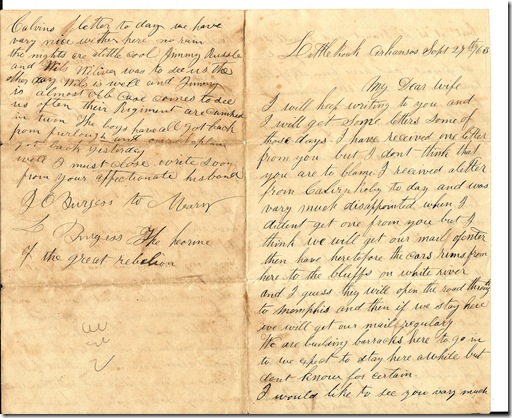 Little Rock Arkansas Sept 27th /63
My Dear wife
I will keep writing to you and
I will get some letters some of
those days I have received one letter
from you but I dont think that
you are to blame. I received a letter
from Calvin to day and was
vary much disappointed when I
dident get one from you but I
think we will get our mail oftenter
then have heretofore the cars runs from
here to the bluffs on white river
and I guess they will open the road through
to Memphis and then if we stay here
we will get our mail regulary
We are building barracks here to go in
to we expect to stay here awhile but
dont know for certain.
I would like to see you vary much
Calvins letter to day we have
vary nice wether here no rain
the nights are alittle cool Jimmy Russle
and Wils was to see us the
other day Wils is well and Jimmy
is almost old Case comes to see
us often their Regiment are
in town The boys have all got back
from furlough and
got back yesterday
well I must close write soon
from your affectionate husband
J C Burgess to Meary
L Burgess The hearine
of the great rebelion